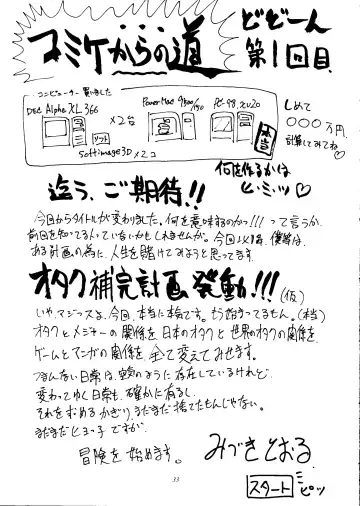 コミケからの道
どどーん
第1回目
コンピューター買いました
DEC Alpha XL 366
×2台
ソフト
Softimage3D×2コ
PowerMac 9500/150
PC-98, Xv20
本言
しめて
○○○万円
計算してみてね♡
何を作るかは
ヒ・ミ・ツ♡
迄う、ご期待!!
今日からタイトルが変わりました。何を意味するのかっ!!! って言うか、
前回を知ってる人っていないかもしれませんが。今回より1年、僕等は、
ある計画の為に、人生を賭けてみようと思ってます。
オタク補完計画発動!!!(仮)
いや、マジっスよ、今回、本当に本気です。もう始まってるもん。(本当)
オタクとメジャーの関係を 日本のオタクと世界のオタクの関係を、
ゲームとマンガの関係を、全て変えてみせます。
つまんない日常は、空気のように存在しているけれど、
変わってゆく日常も、確かに有るし、
それを求めるかぎり、まだまだ捨てたもんじゃない。
まだまだヒヨっ子ですが、
冒険を始めます。
みづきとおる
スタート
ピッ
33